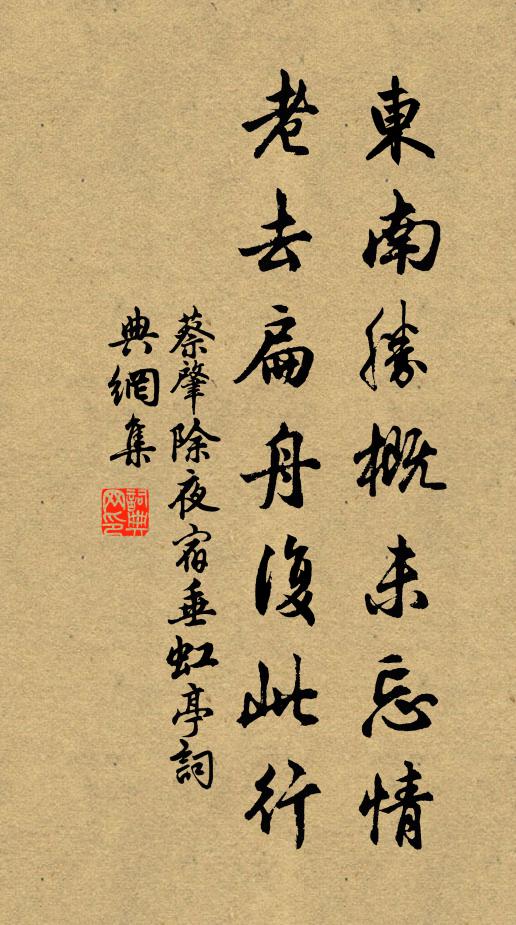 東南勝概未忘情
老去扁舟復此行
蔡肇除夜宿垂虹亭詞
典網集
詞典網印